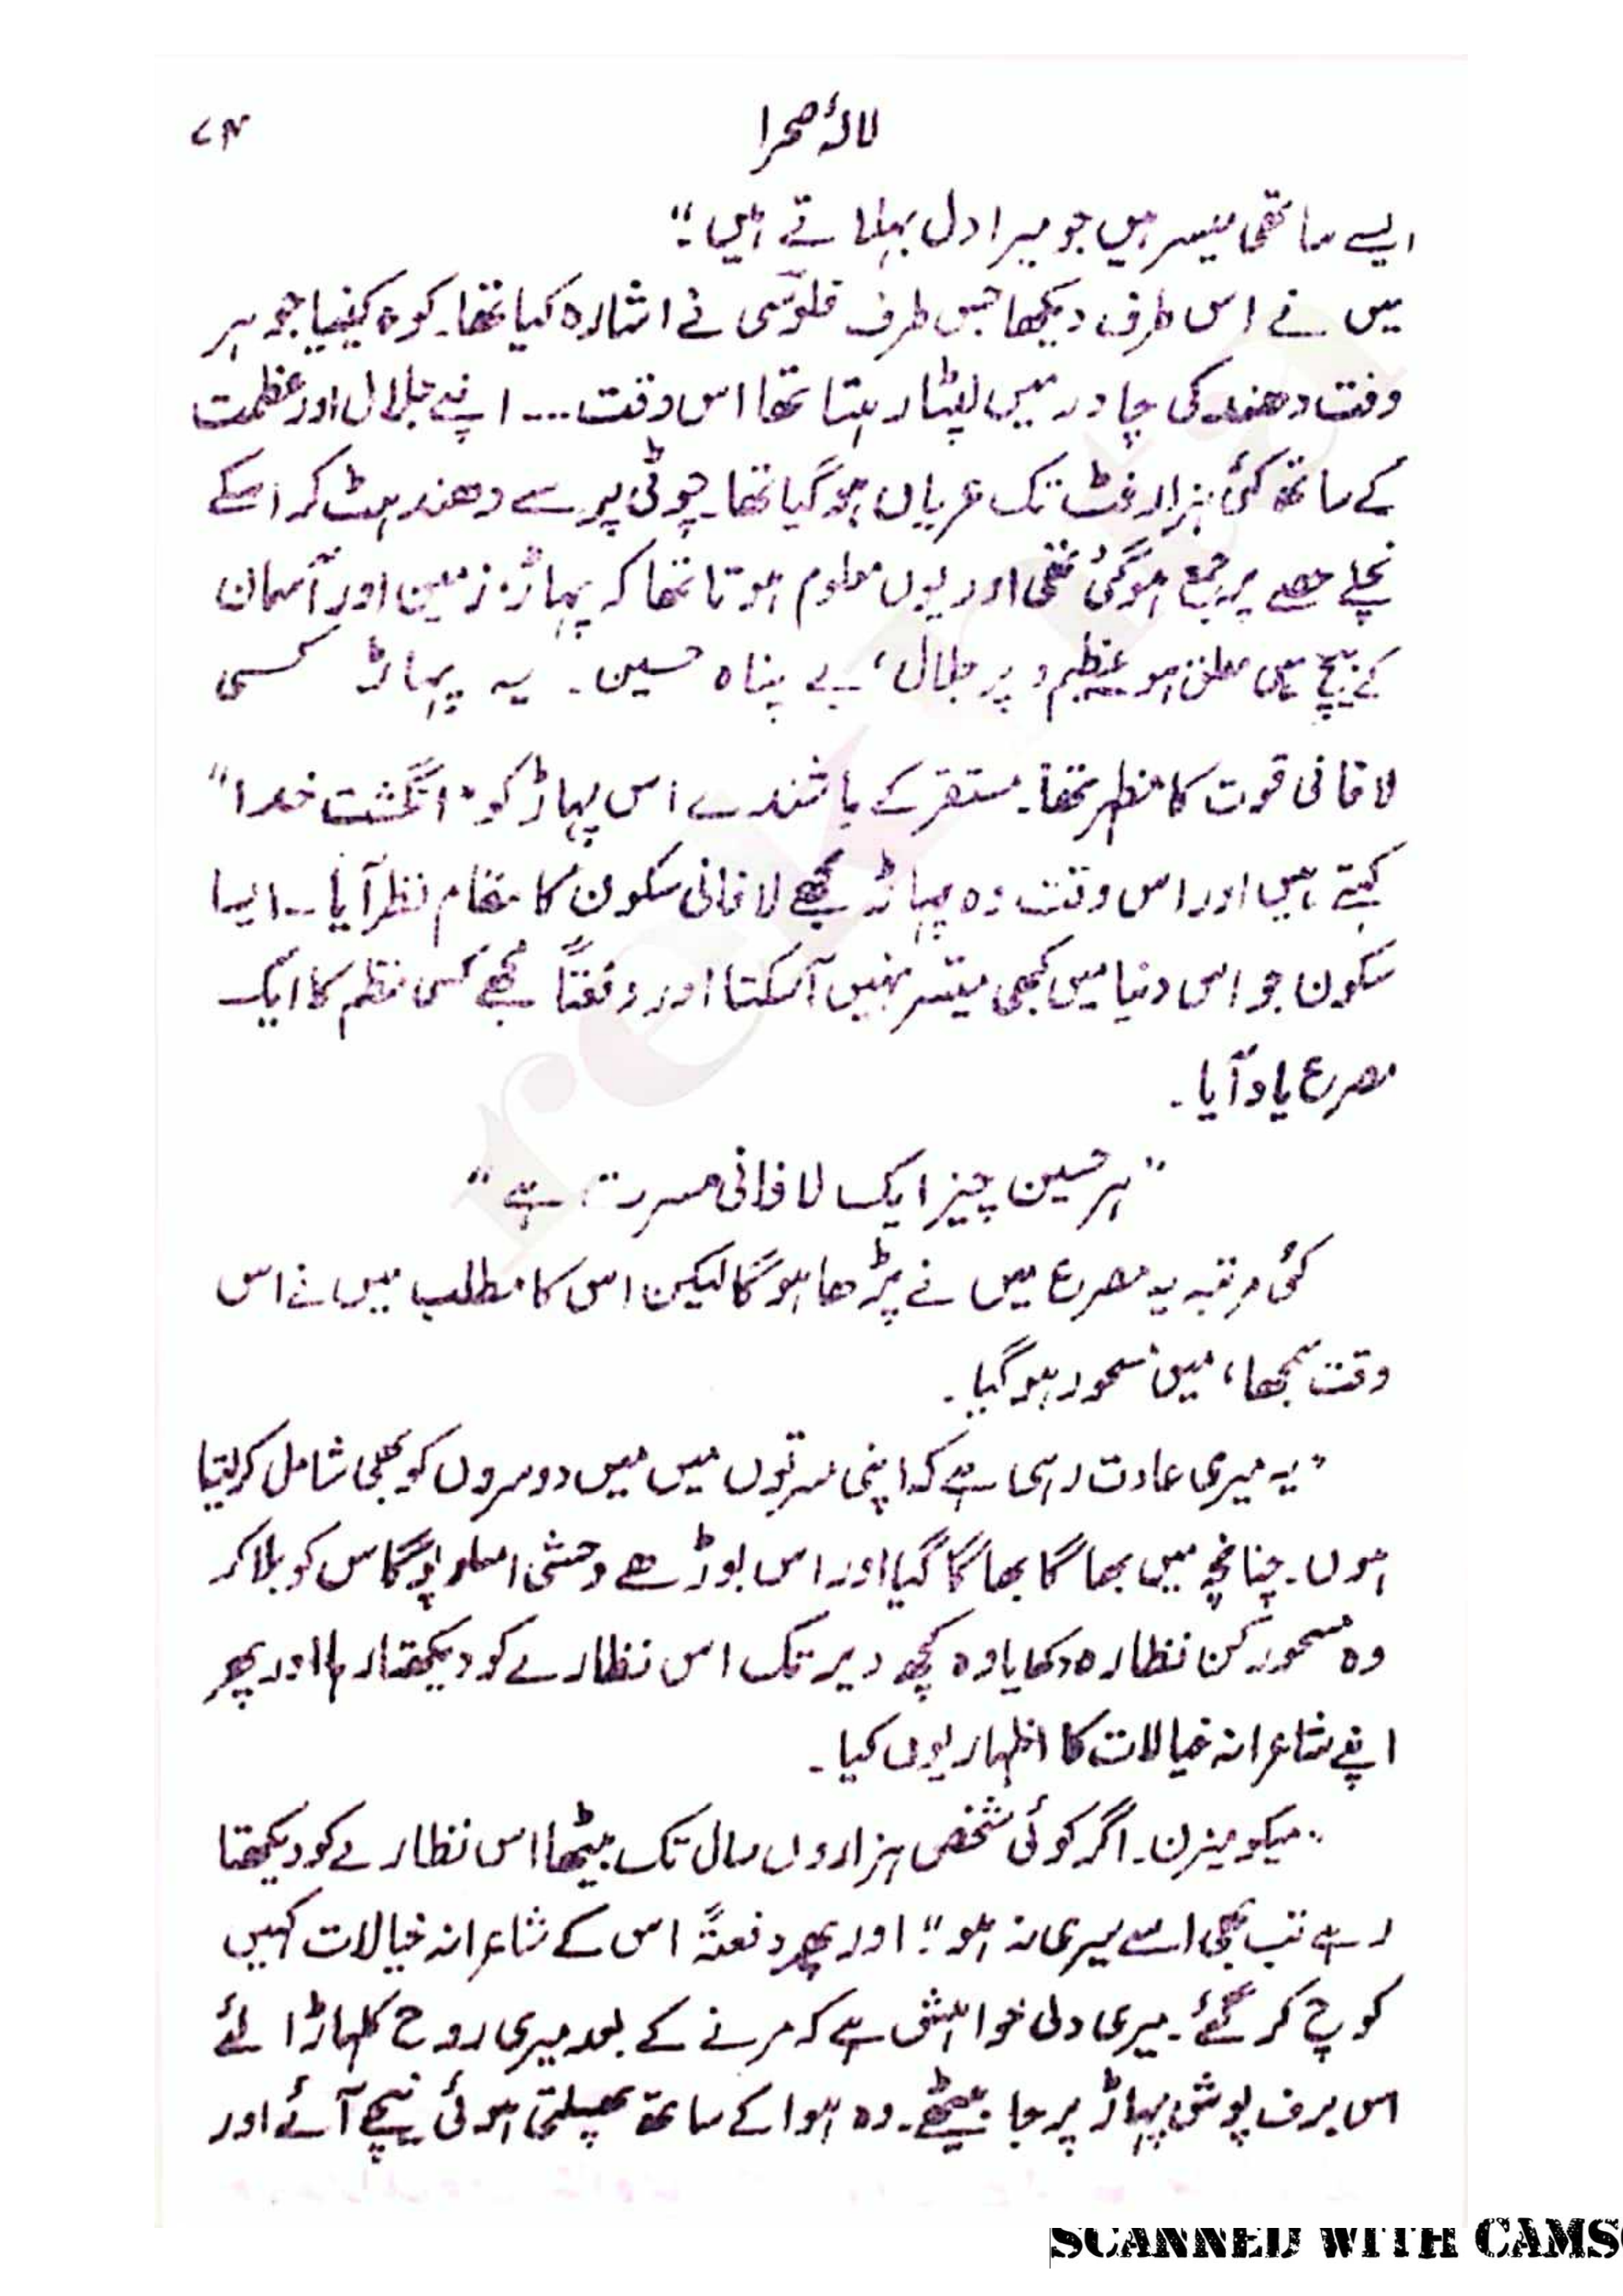 لالۂ صحرا ۷۴
ایسے ساتھی میسر ہیں جو میرا دل بہلاتے ہیں"
میں نے اس طرف دیکھا جس طرف فلوسی نے اشارہ کیا تھا۔ کوہ کینیا جو ہر
وقت دھند کی چادر میں لپٹا رہتا تھا اس وقت... اپنے جلال اور عظمت
کے ساتھ کئی ہزار فٹ تک عریاں ہو گیا تھا۔ چوٹی پر سے دھند ہٹ کر اسکے
نچلے حصے پر جمع ہو گئی تھی اور یوں معلوم ہوتا تھا کہ پہاڑ زمین اور آسمان
کے بیچ میں معلق ہو عظیم و پر جلال، بے پناہ حسین۔ یہ پہاڑ کسی
لافانی قوت کا مظہر تھا۔ مستقر کے باشندے اس پہاڑ کو "انگشت خدا"
کہتے ہیں اور اس وقت وہ پہاڑ مجھے لافانی سکون کا مقام نظر آیا۔ ایسا
سکون جو اس دنیا میں کبھی میسّر نہیں آسکتا اور دفعتاً مجھے کسی نظم کا ایک
مصرع یاد آیا۔
"ہر حسین چیز ایک لافانی مسرت ہے"
کئی مرتبہ یہ مصرع میں نے پڑھا ہوگا لیکن اس کا مطلب میں نے اس
وقت سمجھا، میں مسحور ہوگیا۔
"یہ میری عادت رہی ہے کہ اپنی مسرتوں میں میں دوسروں کو بھی شامل کرلیتا
ہوں۔ چنانچہ میں بھاگا بھاگا گیا اور اس بوڑھے وحشی امسلوپوگاس کو بلا کر
وہ مسحور کن نظارہ دکھایا وہ کچھ دیر تک اس نظارے کو دیکھتا رہا اور پھر
اپنے شاعرانہ خیالات کا اظہار یوں کیا۔
"میکومیزن۔ اگر کوئی شخص ہزاروں سال تک بیٹھا اس نظارے کو دیکھتا
رہے تب بھی اسے سیری نہ ہو"؛ اور پھر دفعتہً اس کے شاعرانہ خیالات کہیں
کوچ کر گئے۔ میری دلی خواہش ہے کہ مرنے کے بعد میری روح کلہاڑا لئے
اس برف پوش پہاڑ پر جا بیٹھے۔ وہ ہوا کے ساتھ پھسلتی ہوئی نیچے آئے اور
rekhta
SCANNED WITH CAMS